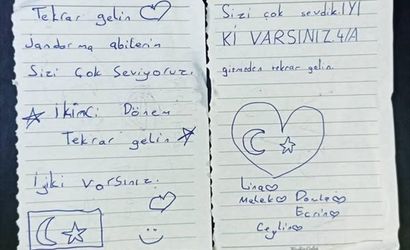 Tekrar gelin
Jandarma abilerim
Sizi çok seviyoruz.
İkinci Dönem
Tekrar gelin
İyiki varsınız.
Sizi çok sevdik. İYİ
Kİ VARSINIZ. 4/A
gitmeden tekrar gelin.
Lina
Melek Davut
Ecrin
Ceylin